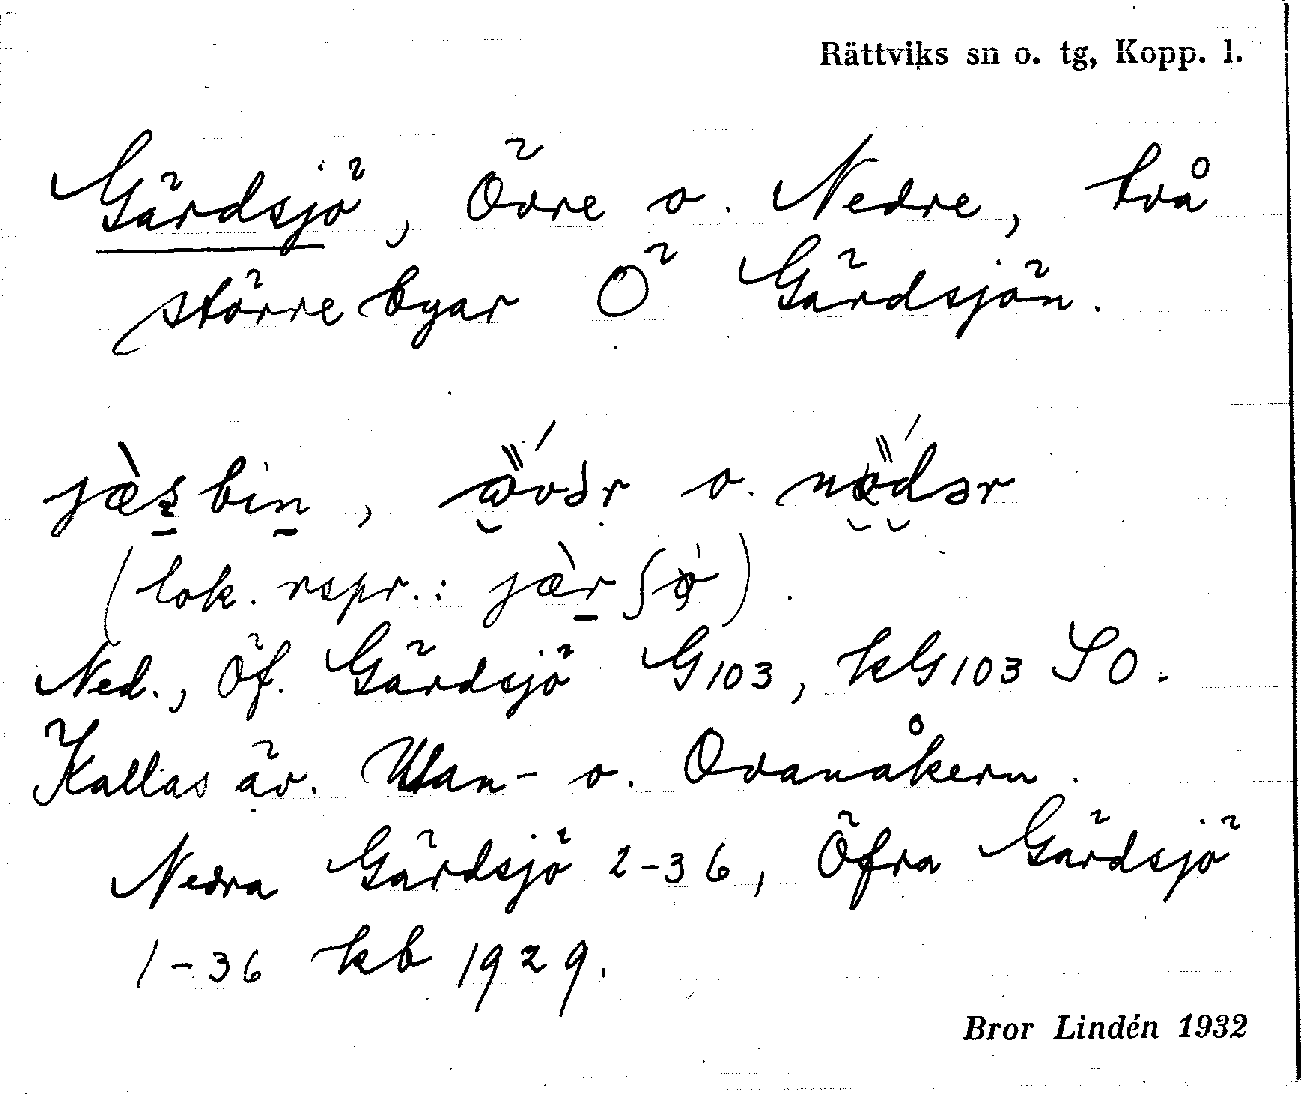 Rättviks sn o. tg, Kopp. l.
Gärdsjö, Övre o. Nedre, två
större byar O Gärdsjön.
jæ̀sbin, o. 
(lok. rspr.: jæ̀rʃø̀).
Ned., Öf. Gärdsjö G103, kG103 SO.
Kallas äv. Utan- o. Ovanåkern.
Nedra Gärdsjö 2-36, Öfra Gärdsjö
1-36 kb 1929.
Bror Lindén 1932